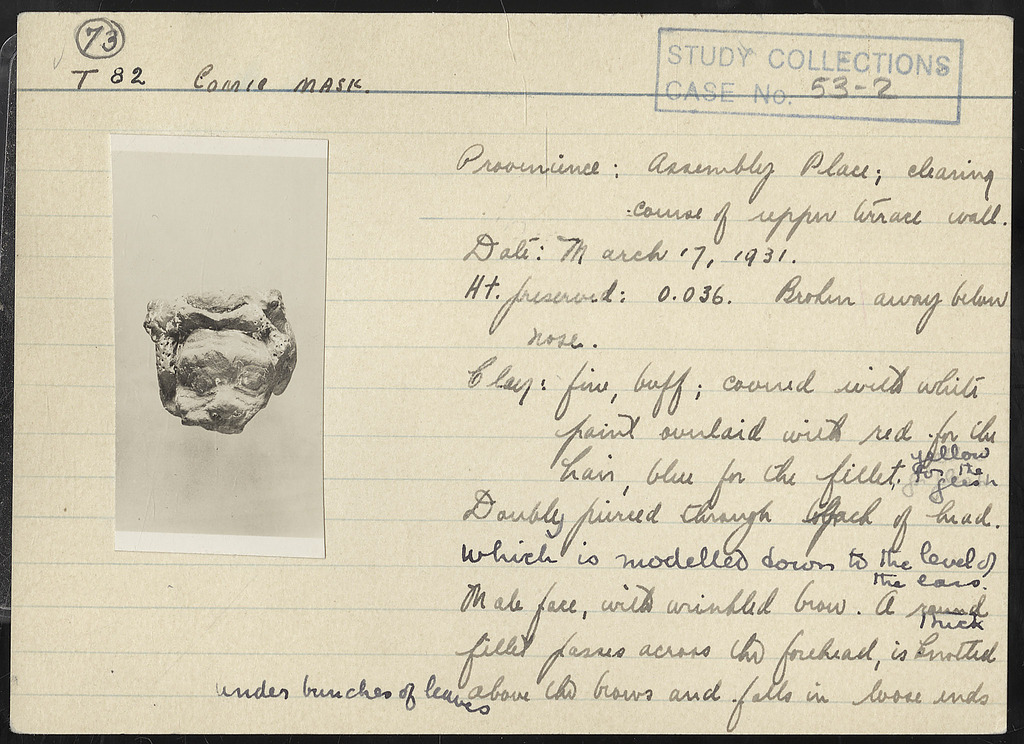 73
T 82 COMIC MASK.
STUDY COLLECTIONS
CASE No. 53-2
Provenience: Assembly Place; clearing
course of upper terrace wall.
Date: March 17, 1931.
Ht. preserved: 0.036. Broken away below
nose.
Clay: fine, buff; covered with white
paint overlaid with red for the
hair, blue for the fillet, yellow
for the
flesh
Doubly pierced through back of head.
which is modelled down to the level of
the ears.
Male face, with wrinkled brow. A round
thick
fillet passes across the forehead, is knotted
under bunches of leaves above the brows and falls in loose ends